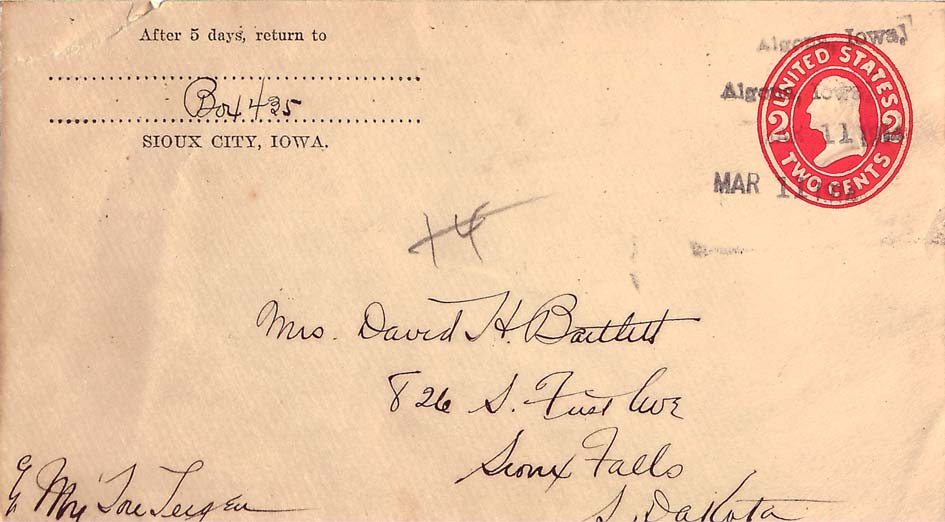 After 5 days, return to
Box 435
SIOUX CITY, IOWA.
Algona, Iowa,
Algona, Iowa
11
MAR 11
UNITED STATES
2 2
TWO CENTS
Mrs. David H. Bartlett
826 S. First Ave
Sioux Falls
S. Dakota